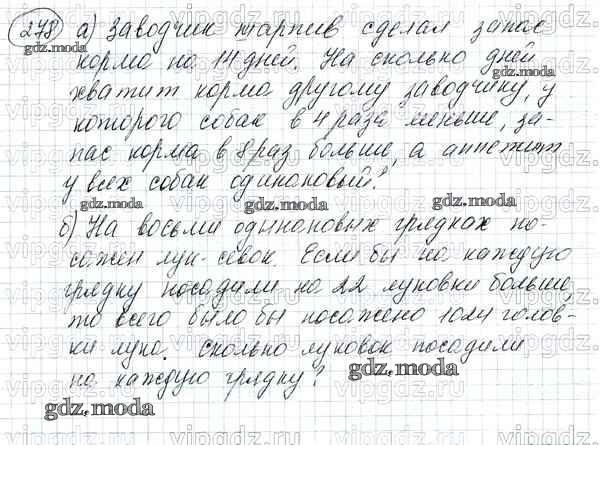 278 а) Заводчик таpпив сделал запас
корма на 14 дней. На сколько дней
хватит корма другому заводчику, у
которого собак в 4 раза меньше, за-
пас корма в 8 раз больше, а аппетит
у всех собак одинаковый?
б) На восьми одинаковых грядках по-
сажен лук-севок. Если бы на каждую
грядку посадили на 22 луковки больше
то всего было бы посажено 1024 голов-
ки лука. Сколько луковок посадили
на каждую грядку?
gdz.moda
vipgdz.ru